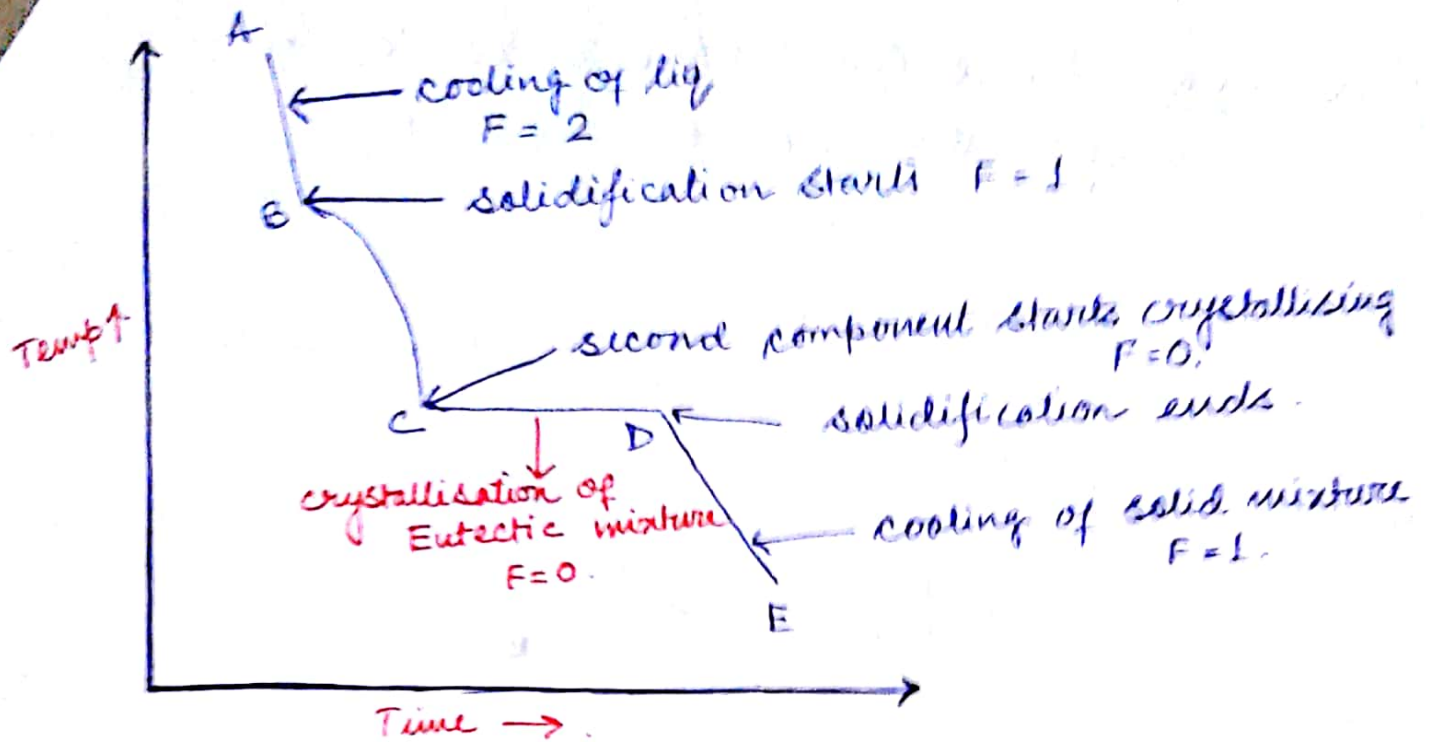 A
cooling of liq
F = 2
B
solidification starts F = 1
Temp↑
second component starts crystallising
F = 0.
C
D
solidification ends.
crystallisation of
Eutectic mixture
F = 0.
cooling of solid mixture
F = 1.
E
Time →